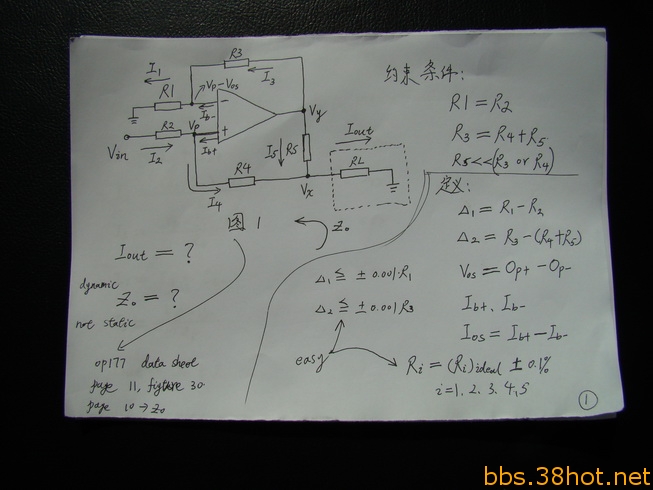 R3
I1
I3
Vp-Vos
R1
Ib-
-
Vp
R2
+
Vy
Vin
I2
Ib+
I5
R5
Iout
R4
RL
I4
Vx
图1
Zo
Iout = ?
dynamic
Zo = ?
not static
op177 data sheet
page 11, figture 30
page 10 → Zo
约束条件:
R1 = R2
R3 = R4+R5
R5<<(R3 or R4)
定义:
Δ1 = R1-R2
Δ2 = R3-(R4+R5)
Vos = Op+ - Op-
Ib+、Ib-
Ios = Ib+-Ib-
Δ1 ≦ ± 0.001·R1
Δ2 ≦ ± 0.001·R3
easy
Ri = (Ri)ideal ± 0.1%
i=1、2、3、4、5
①
bbs.38hot.net